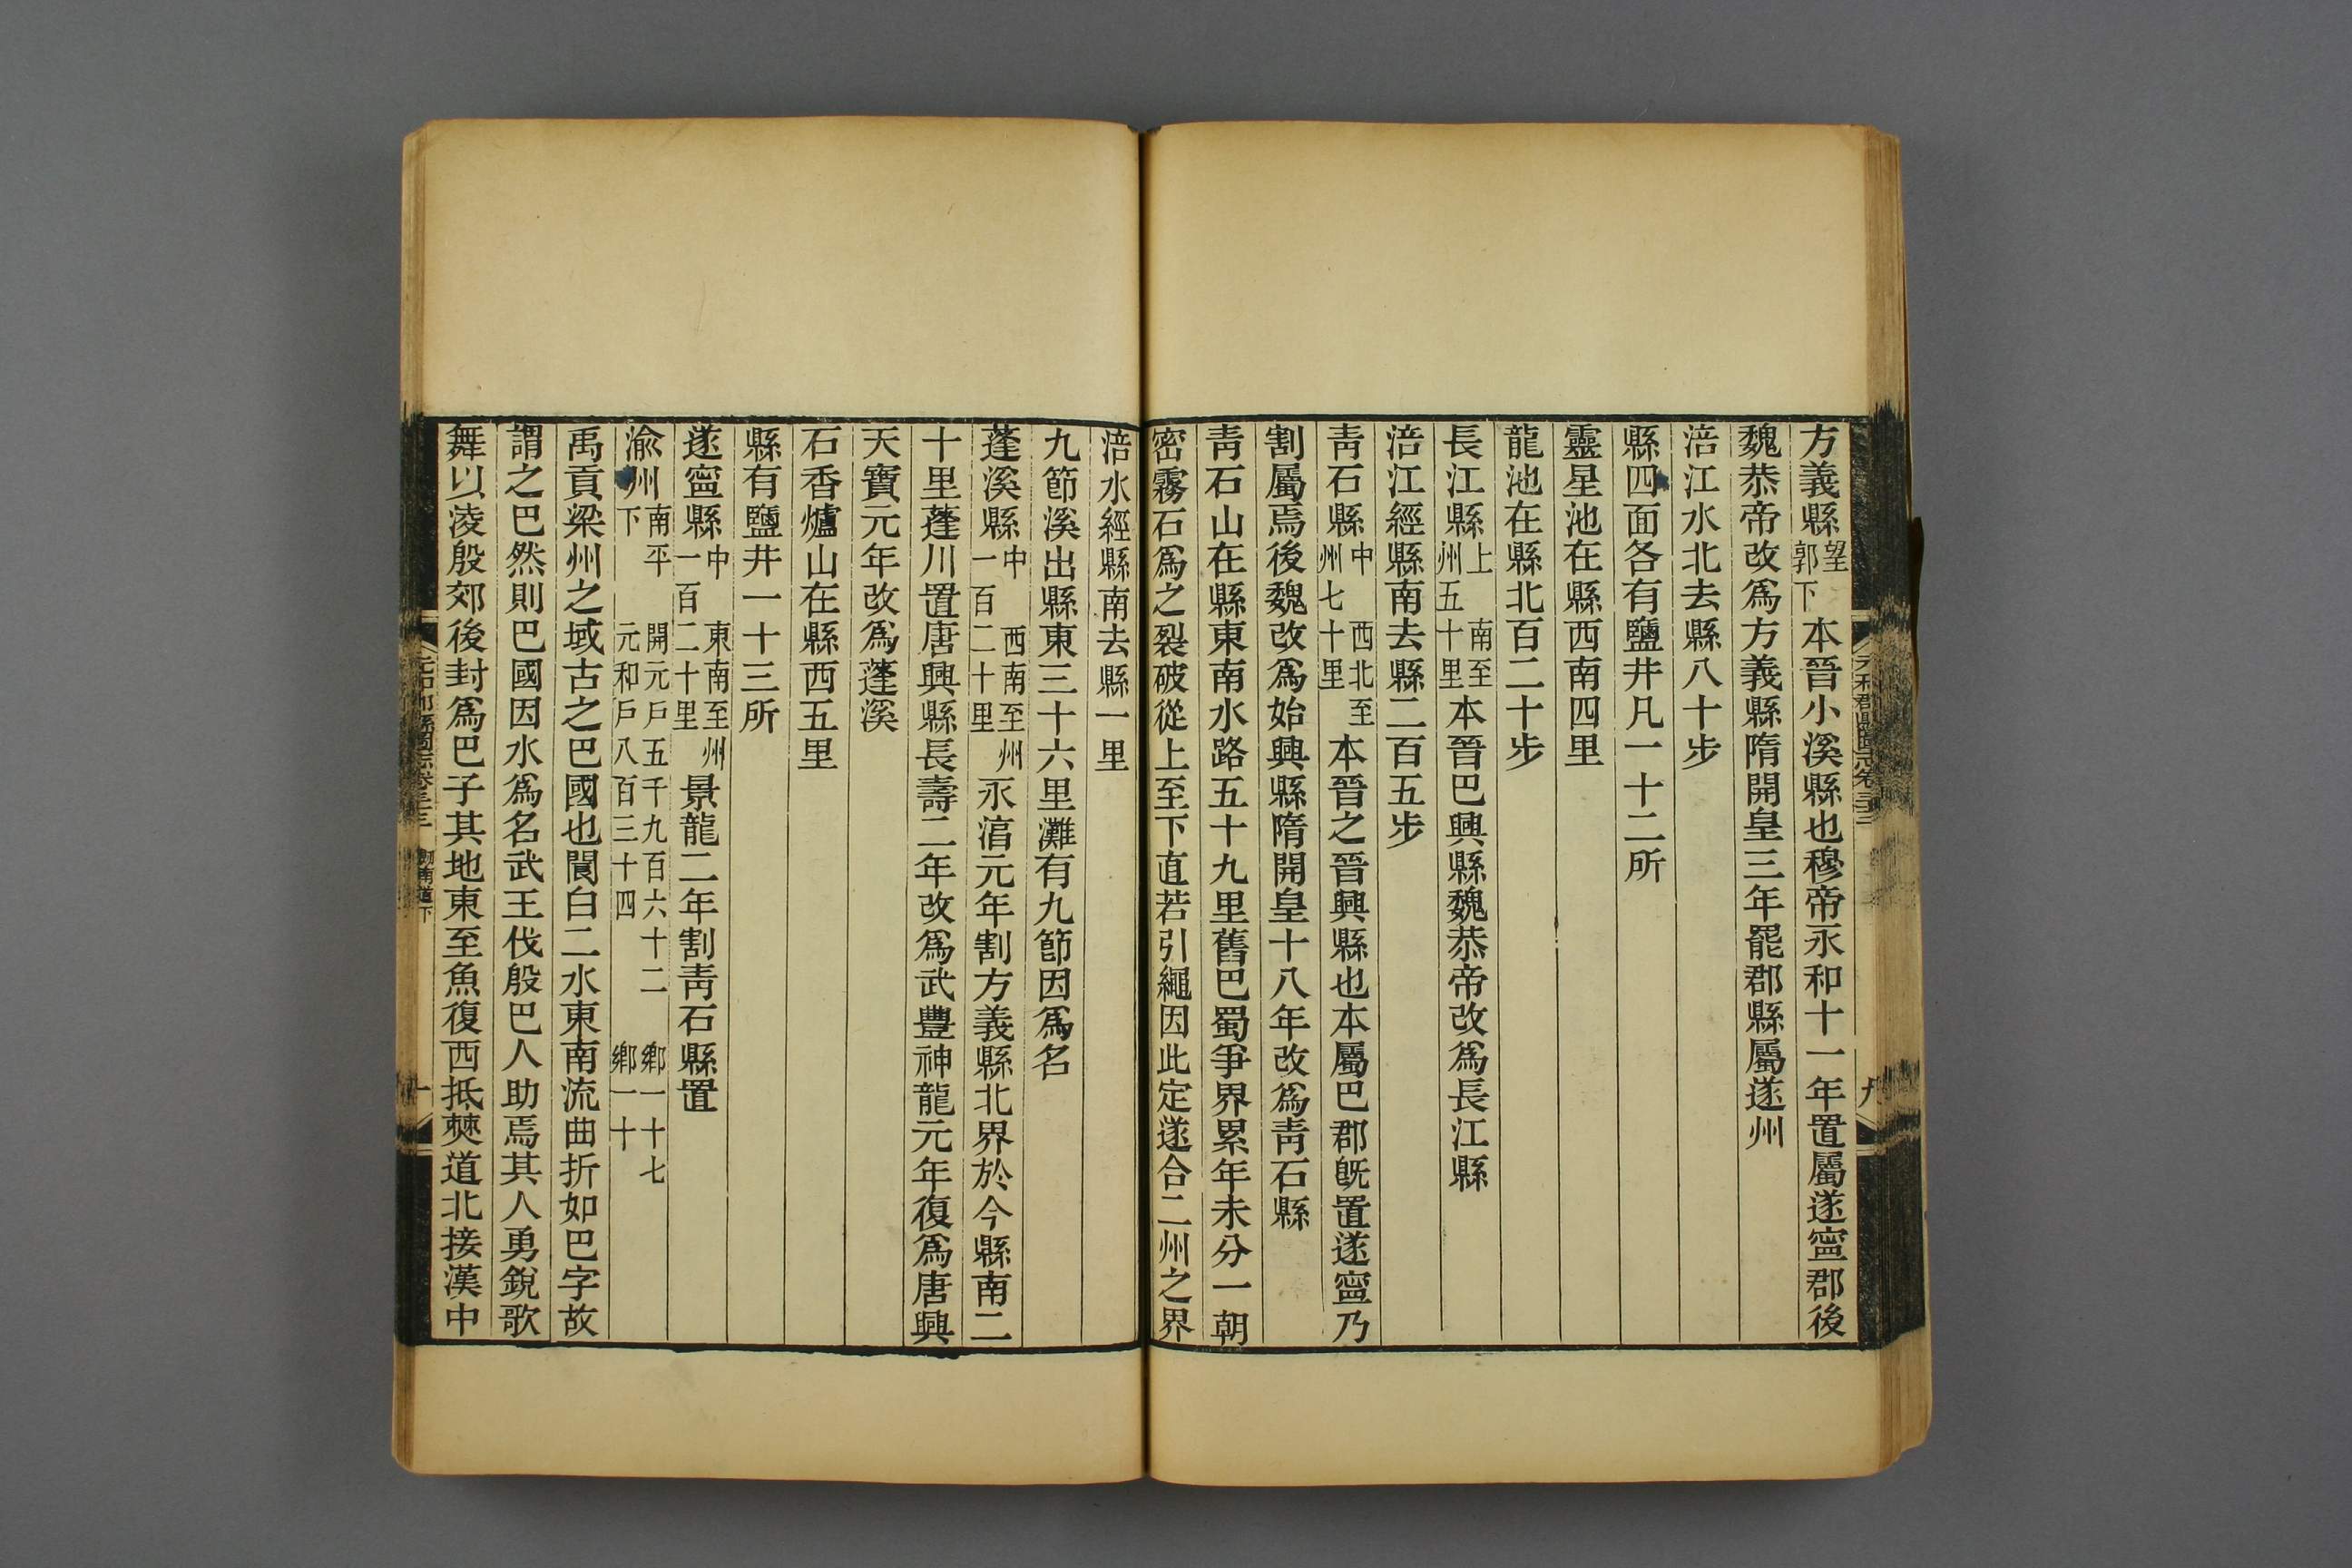 方義縣望郭下 本晉小溪縣也穆帝永和十一年置屬遂寧郡後
魏恭帝改爲方義縣隋開皇三年罷郡縣屬遂州
涪江水北去縣八十步
縣四面各有鹽井凡一十二所
靈星池在縣西南四里
龍池在縣北百二十步
長江縣上 南至州五十里本晉巴興縣魏恭帝改爲長江縣
涪江經縣南去縣二百五步
靑石縣中 西北至州七十里 本晉之晉興縣也本屬巴郡旣置遂寧乃
割屬焉後魏改爲始興縣隋開皇十八年改爲靑石縣
靑石山在縣東南水路五十九里舊巴蜀爭界累年未分一朝
密霧石爲之裂破從上至下直若引繩因此定遂合二州之界
涪水經縣南去縣一里
九節溪出縣東三十六里灘有九節因爲名
蓬溪縣中 西南至州一百二十里 永淳元年割方義縣北界於今縣南二
十里蓬川置唐興縣長壽二年改爲武豐神龍元年復爲唐興
天寶元年改爲蓬溪
石香爐山在縣西五里
縣有鹽井一十三所
遂寧縣中 東南至州一百二十里 景龍二年割靑石縣置
渝州南平下 開元戶五千九百六十二 鄉一十七 元和戶八百三十四 鄉一十
禹貢梁州之域古之巴國也閬白二水東南流曲折如巴字故
謂之巴然則巴國因水爲名武王伐殷巴人助焉其人勇銳歌
舞以淩殷郊後封爲巴子其地東至魚復西抵僰道北接漢中
元和郡縣圖志卷三十三 劍南道下